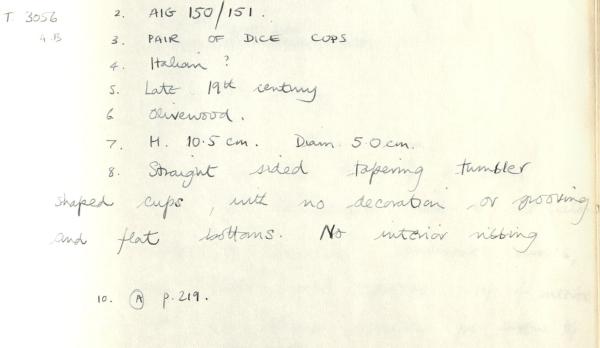 T 3056
A.B
2. AIG 150/151.
3. PAIR OF DICE CUPS
4. Italian ?
5. Late 19th century
6 Olivewood.
7. H. 10.5 cm. Diam 5.0 cm.
8. Straight sided tapering tumbler
shaped cups, with no decoration or grooving,
and flat bottoms. No interior ribbing
10. A p.219.